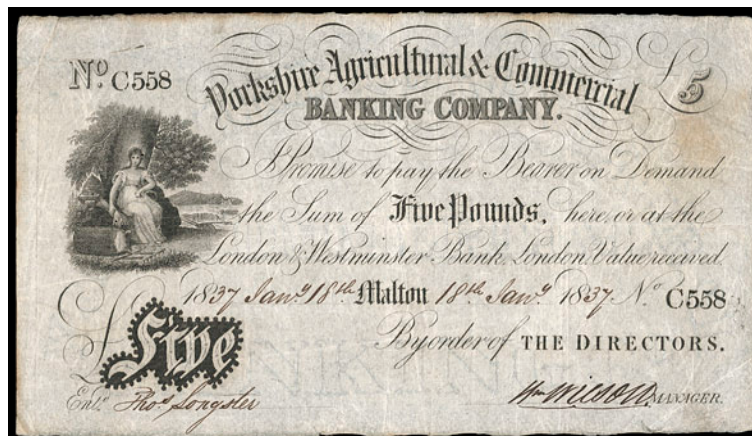 No. C558
Yorkshire Agricultural & Commercial
£5
BANKING COMPANY.
I Promise to pay the Bearer on Demand
the Sum of Five Pounds, here, or at the
London & Westminster Bank London Value received.
1837 Jany. 18th Malton 18th Jany. 1837 No. C558
By order of THE DIRECTORS.
£Five
Entd. Thos Songster
Wm Wilson MANAGER.